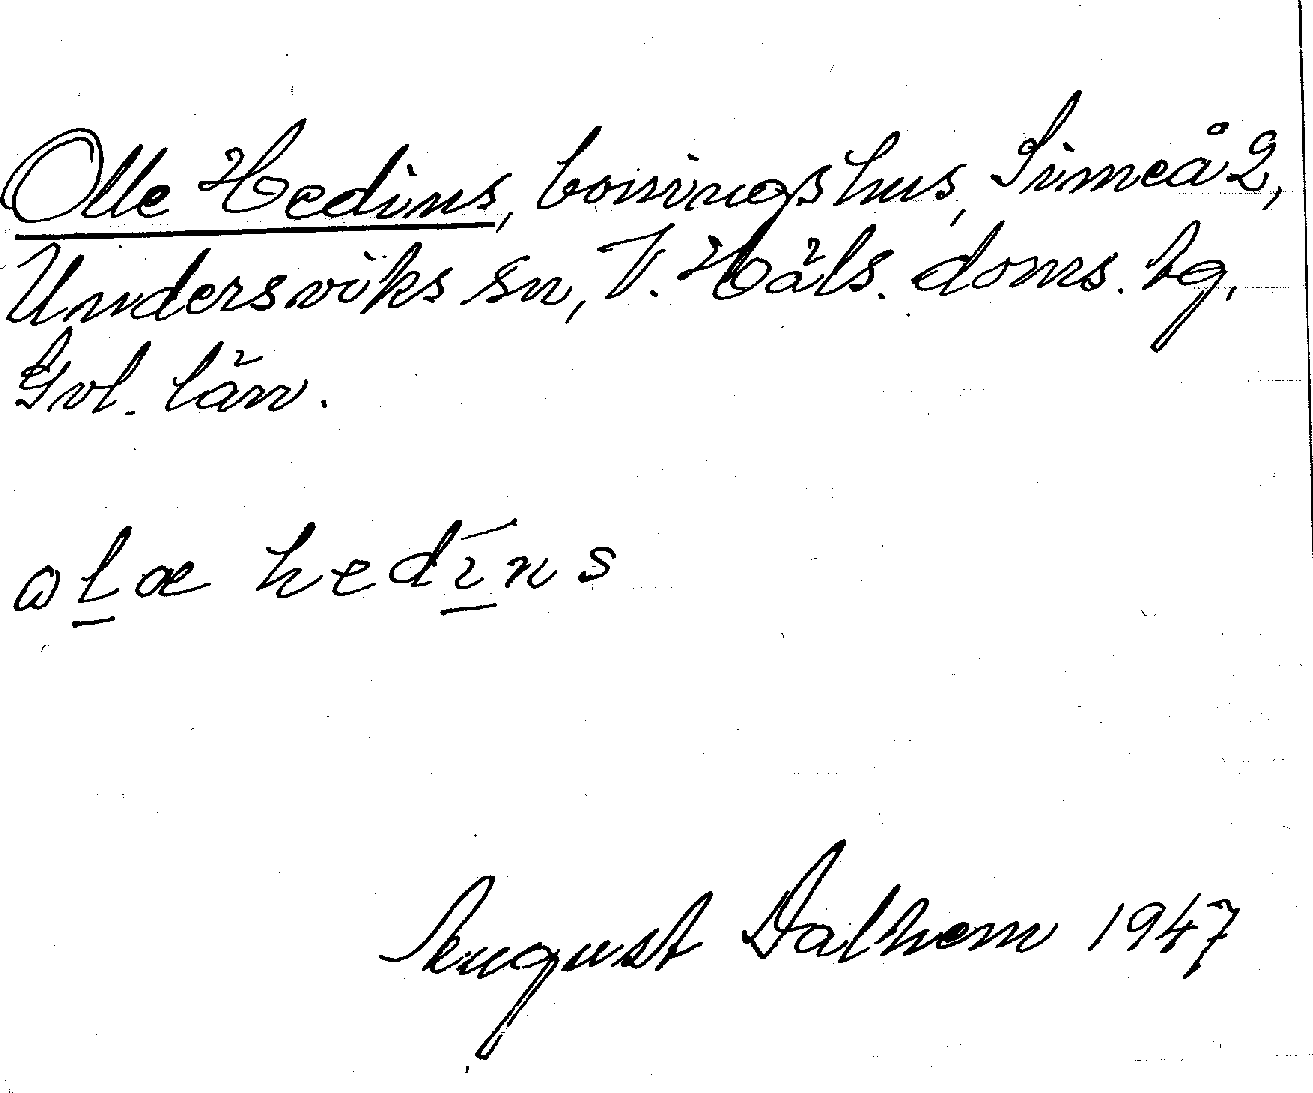 Olle Hedins, boningshus, Simeå 2,
Undersviks sn, V. Häls. doms. tg,
Gvl. län.
ωl̲æ hedī̲ns
August Dalhem 1947